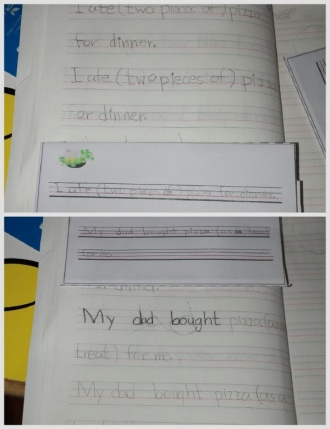 I ate (two piece of) pizza
for dinner.
I ate (two pieces of) pizza
for dinner.
I ate (two pieces of) pizza for dinner.
My dad bought pizza (as a treat)
for me.
My dad bought pizza (as a
treat) for me
My dad bought pizza (as a